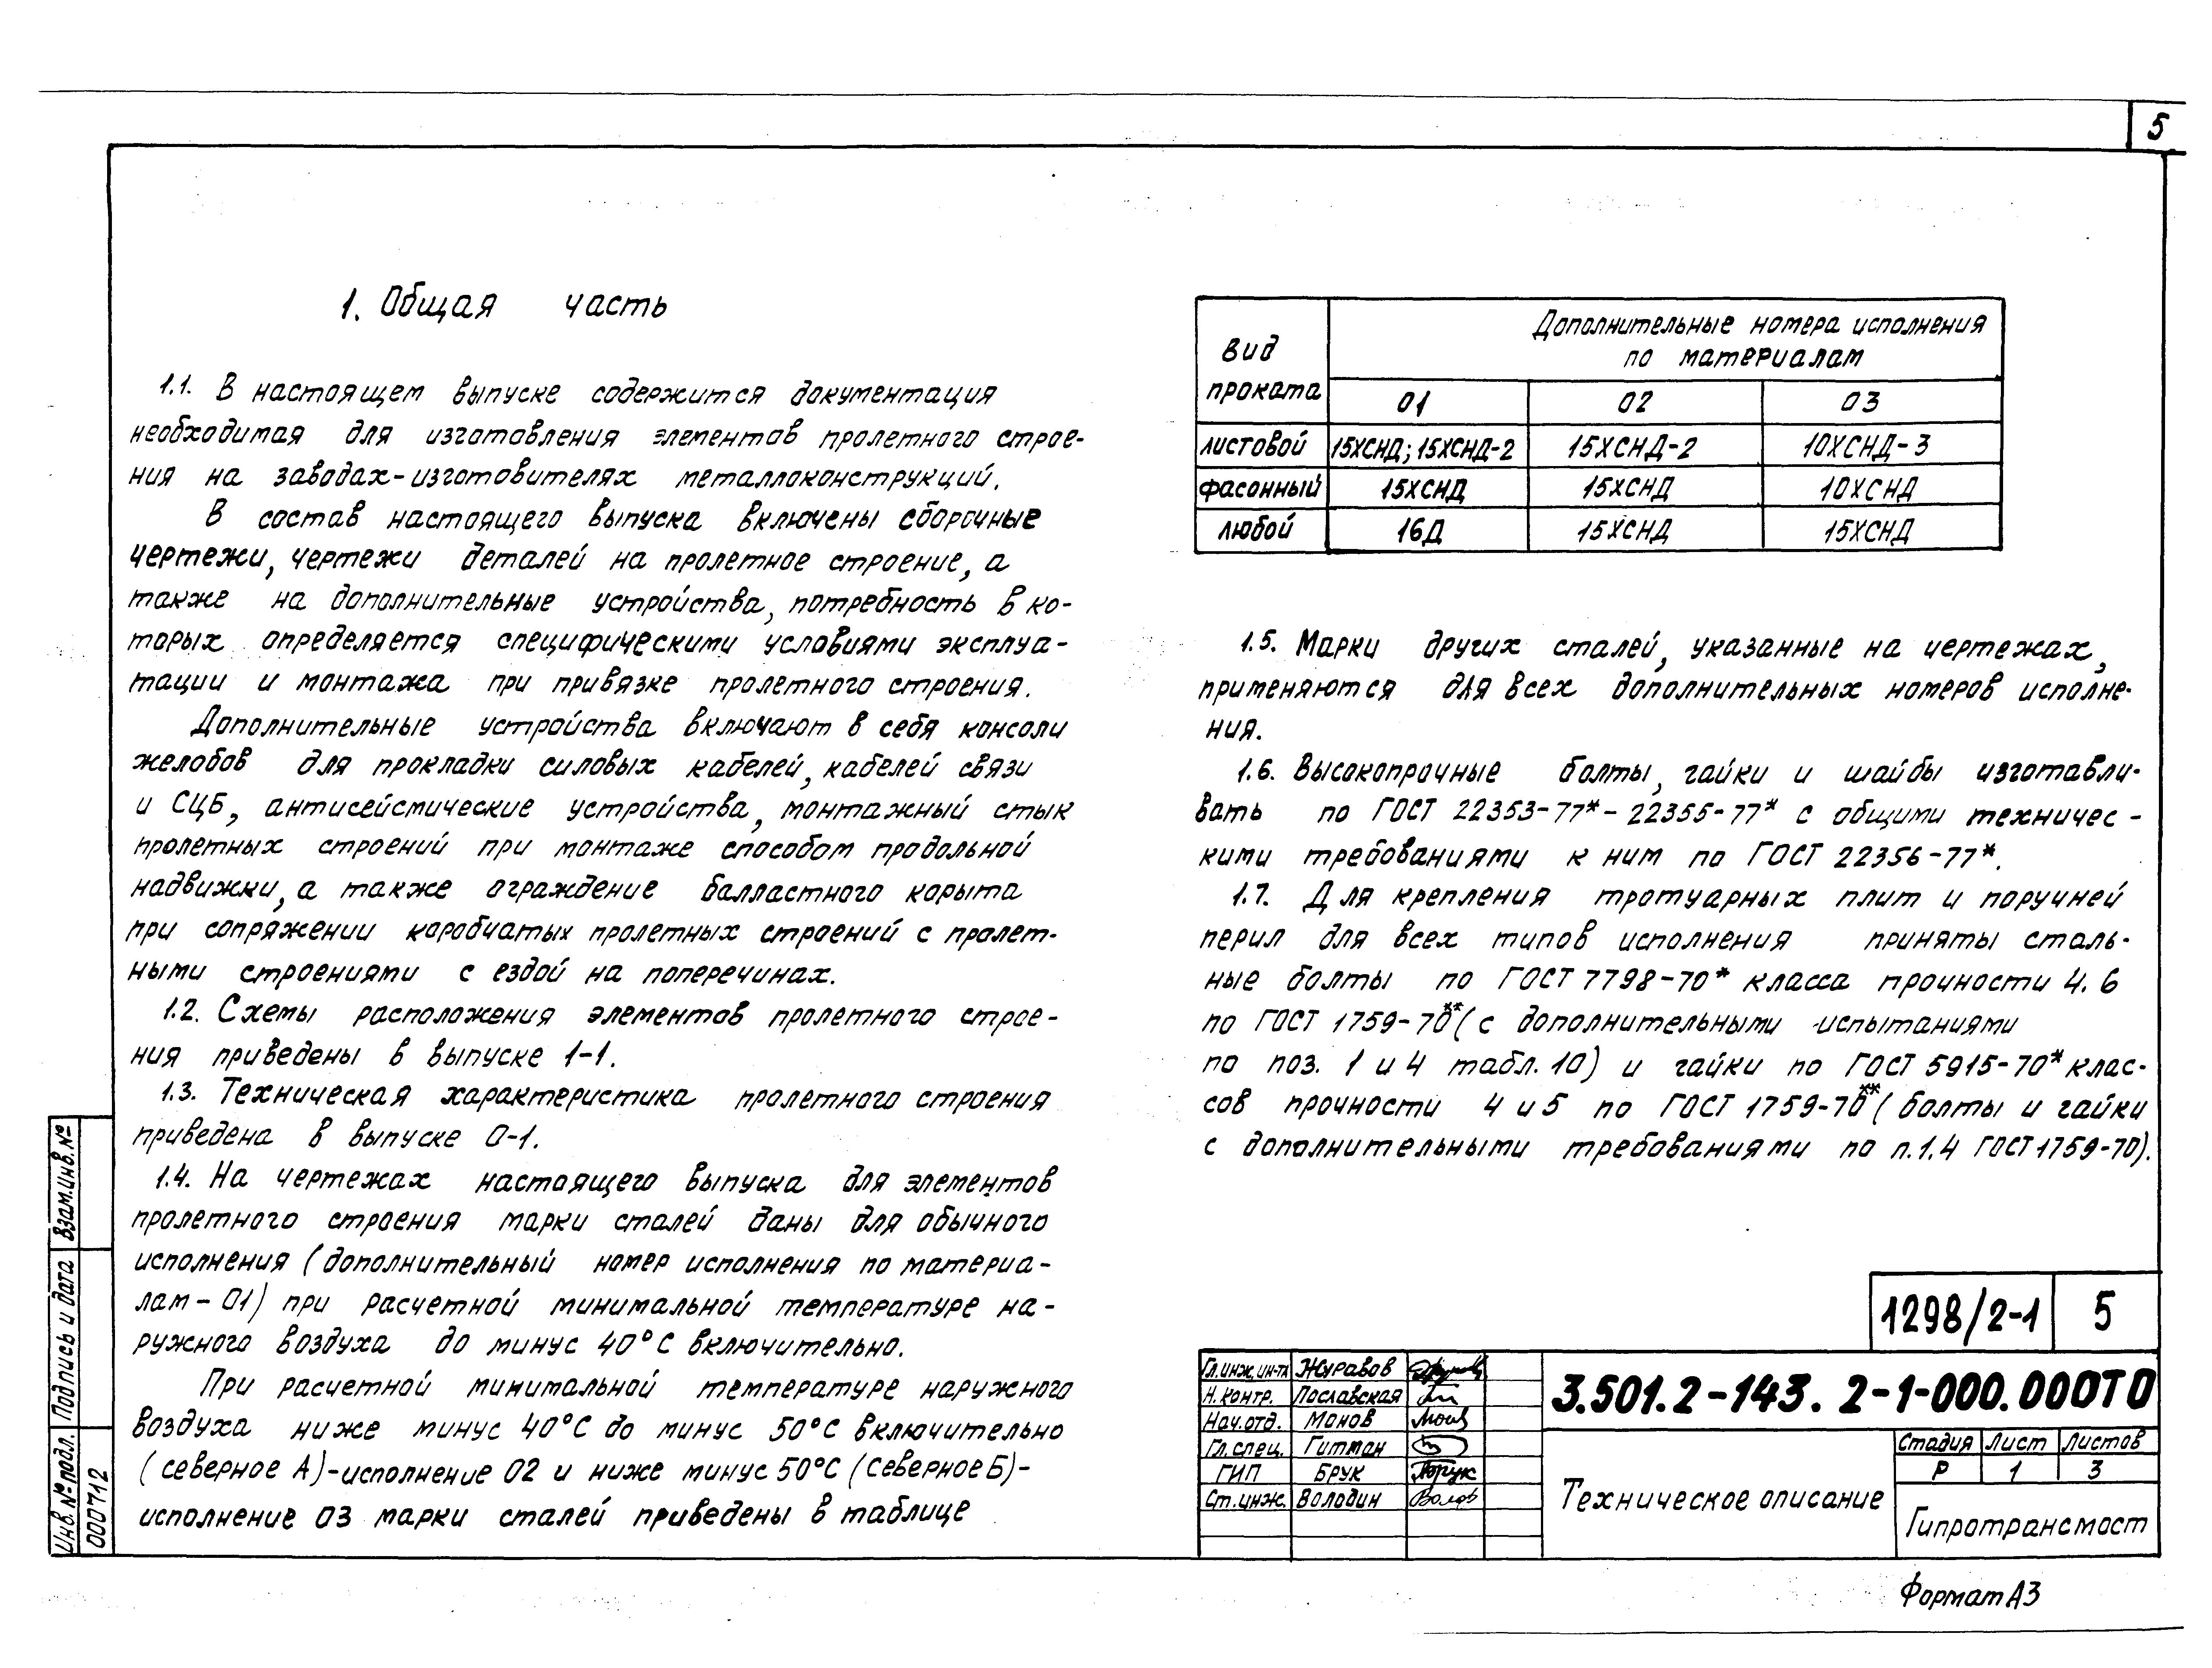 5
1. Общая часть
1.1. В настоящем выпуске содержится документация
необходимая для изготовления элементов пролетного строе-
ния на заводах-изготовителях металлоконструкций.
В состав настоящего выпуска включены сборочные
чертежи, чертежи деталей на пролетное строение, а
также на дополнительные устройства, потребность в ко-
торых определяется специфическими условиями эксплуа-
тации и монтажа при привязке пролетного строения.
Дополнительные устройства включают в себя консоли
желобов для прокладки силовых кабелей, кабелей связи
и СЦБ, антисейсмические устройства, монтажный стык
пролетных строений при монтаже способом продольной
надвижки, а также ограждение балластного корыта
при сопряжении коробчатых пролетных строений с пролет-
ными строениями с ездой на поперечинах.
1.2. Схемы расположения элементов пролетного строе-
ния приведены в выпуске 1-1.
1.3. Техническая характеристика пролетного строения
приведена в выпуске 0-1.
1.4. На чертежах настоящего выпуска для элементов
пролетного строения марки сталей даны для обычного
исполнения (дополнительный номер исполнения по материа-
лам - 01) при расчетной минимальной температуре на-
ружного воздуха до минус 40°С включительно.
При расчетной минимальной температуре наружного
воздуха ниже минус 40°С до минус 50°С включительно
(северное А)-исполнение 02 и ниже минус 50°С (северное Б)-
исполнение 03 марки сталей приведены в таблице
Вид проката | Дополнительные номера исполнения по материалам
01 | 02 | 03
листовой | 15ХСНД; 15ХСНД-2 | 15ХСНД-2 | 10ХСНД-3
фасонный | 15ХСНД | 15ХСНД | 10ХСНД
любой | 16Д | 15ХСНД | 15ХСНД
1.5. Марки других сталей, указанные на чертежах,
применяются для всех дополнительных номеров исполне-
ния.
1.6. Высокопрочные болты, гайки и шайбы изготавли-
вать по ГОСТ 22353-77* - 22355-77* с общими техничес-
кими требованиями к ним по ГОСТ 22356-77*.
1.7. Для крепления тротуарных плит и поручней
перил для всех типов исполнения приняты сталь-
ные болты по ГОСТ 7798-70* класса прочности 4.6
по ГОСТ 1759-70** (с дополнительными испытаниями
по поз. 1 и 4 табл. 10) и гайки по ГОСТ 5915-70* клас-
сов прочности 4 и 5 по ГОСТ 1759-70** (болты и гайки
с дополнительными требованиями по п.1.4 ГОСТ 1759-70).
1298/2-1 | 5
3.501.2-143. 2-1-000.000ТО
Гл.инж.ин-та Журавов
Н.контр. Пославская
Нач.отд. Монов
Гл.спец. Гитман
ГИП Брук
Ст.инж. Володин
Техническое описание
Стадия Лист Листов
Р 1 3
Гипротрансмост
Формат А3
Взам.инв.№
Подпись и дата
Инв.№ подл.
000712